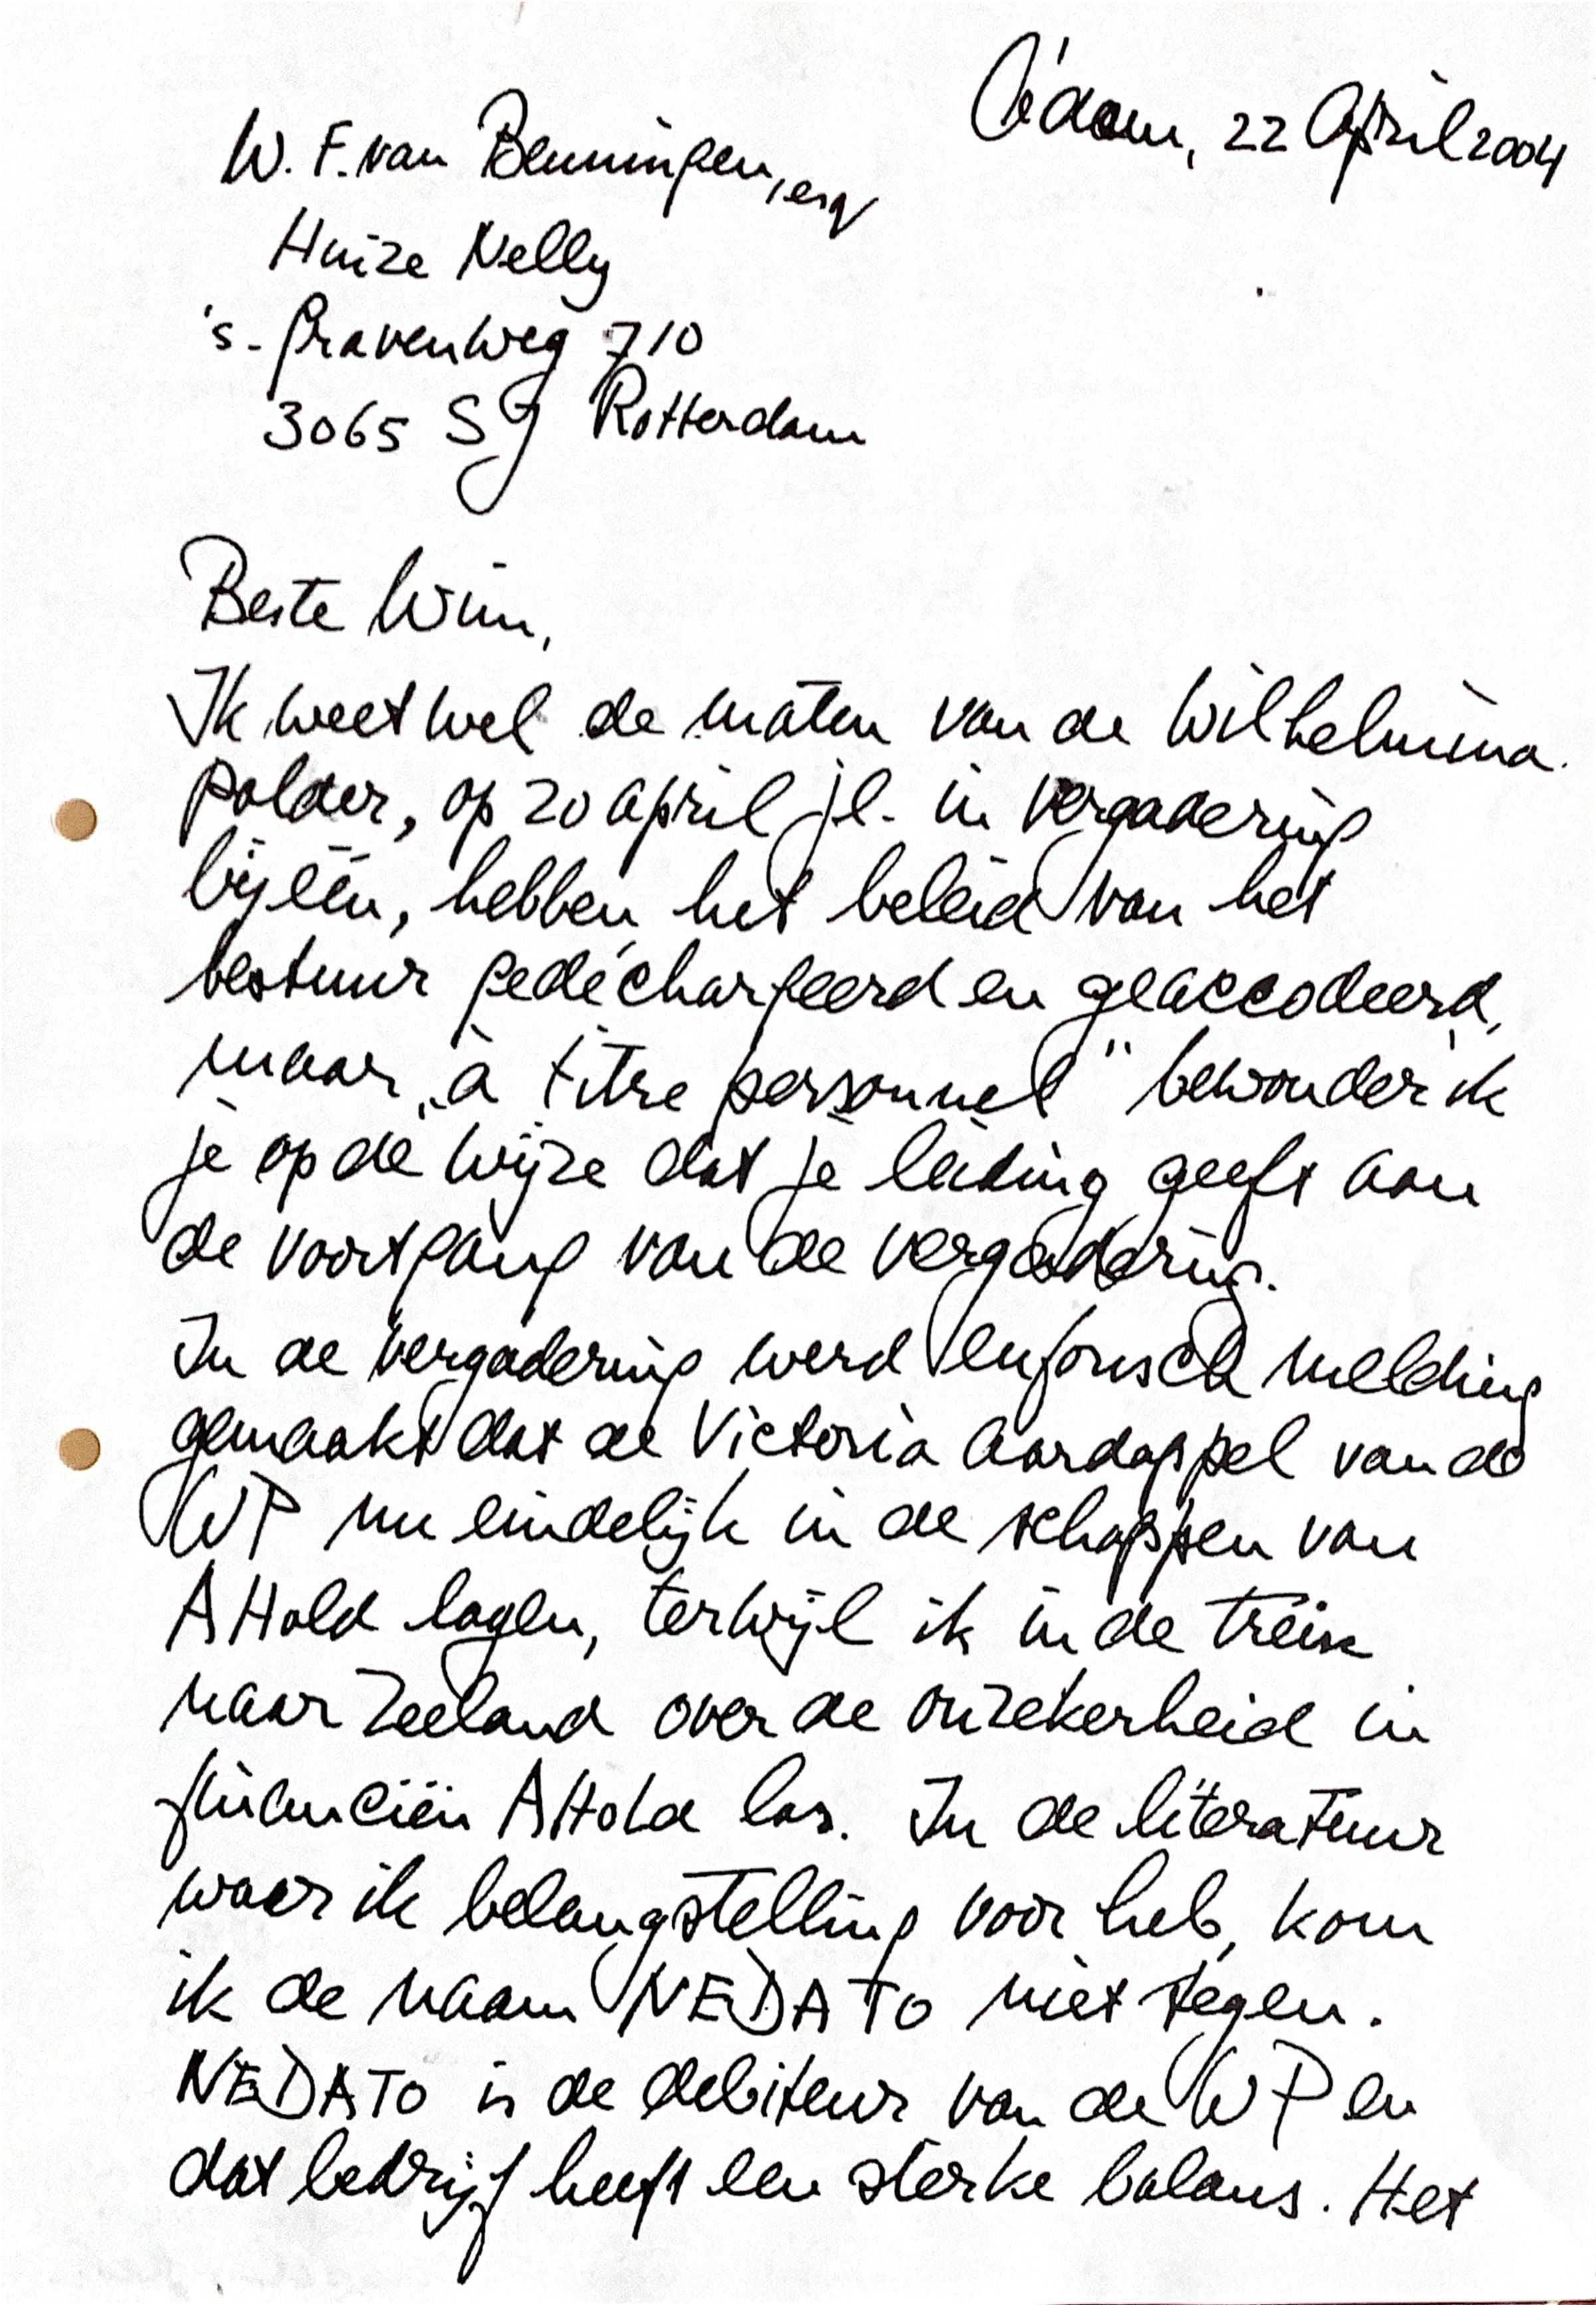 A'dam, 22 April 2004
W. F. van Beuningen, esq
Huize Nelly
's-Gravenweg 710
3065 SJ Rotterdam
Beste Wim,
Ik weet wel de maten van de Wilhelmina-
polder, op 20 april jl. in vergadering
bijéén, hebben het beleid van het
bestuur gedéchargeerd en geaccodeerd,
maar „à titre personnel" bewonder ik
je op de wijze dat je leiding geeft aan
de voortgang van de vergadering.
In de vergadering werd euforisch melding
gemaakt dat de Victoria aardappel van de
WP nu eindelijk in de schappen van
AHold lagen, terwijl ik in de trein
naar Zeeland over de onzekerheid in
financiën AHold las. In de literatuur
waar ik belangstelling voor heb, kom
ik de naam NEDATO niet tegen.
NEDATO is de debiteur van de WP en
dat bedrijf heeft een sterke balans. Het